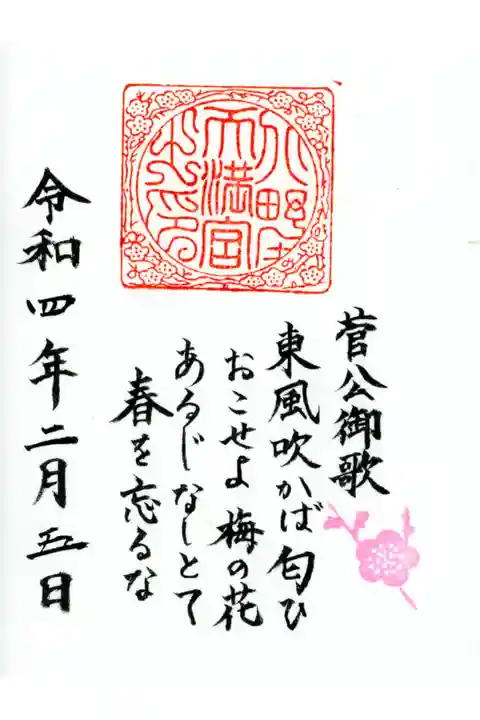 菅公御歌
東風吹かば匂ひ
おこせよ梅の花
あるじなしとて
春を忘るな
天満宮
令和四年二月五日